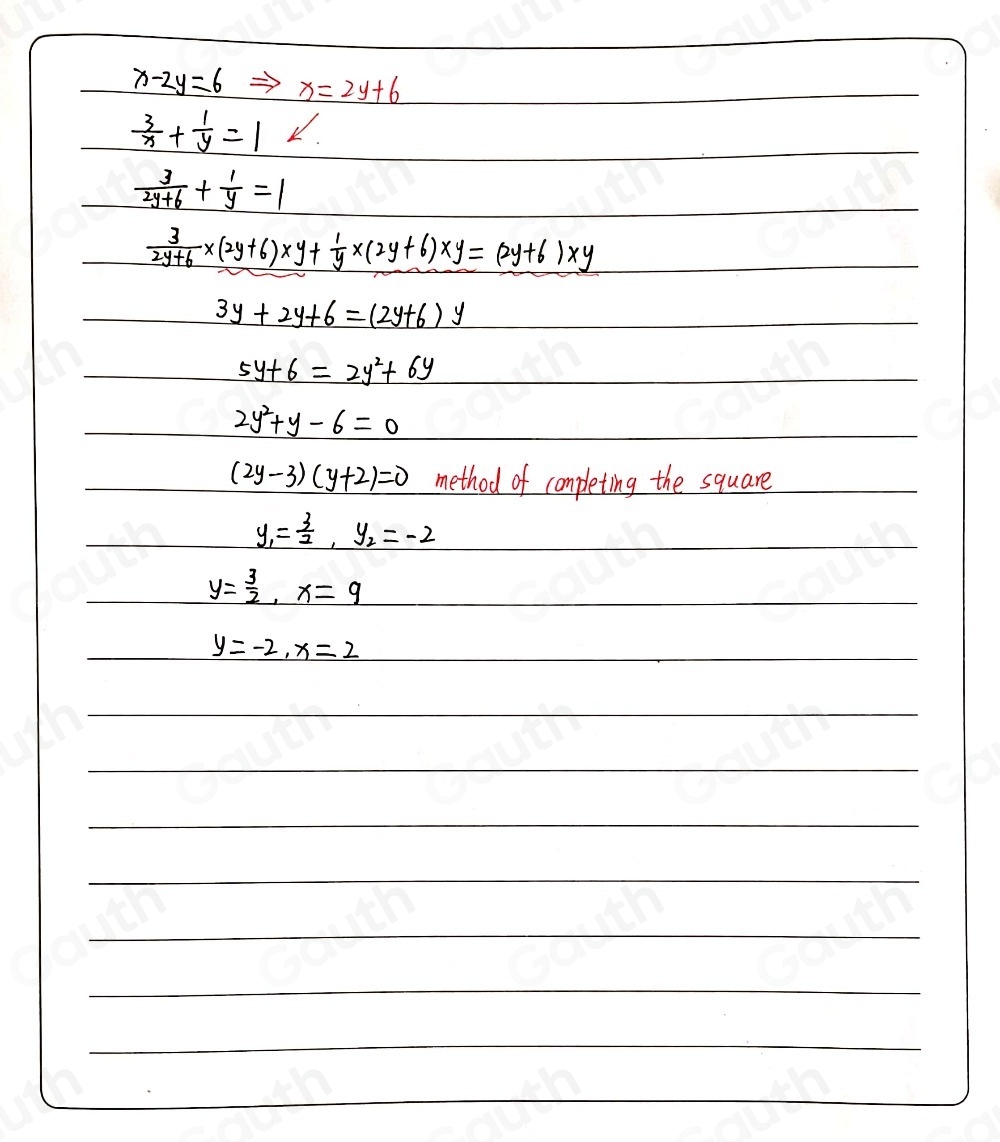 x-2y=6 ⇒ x=2y+6
3/x + 1/y = 1 ↙
3/(2y+6) + 1/y = 1
3/(2y+6) ×(2y+6)×y + 1/y ×(2y+6)×y = (2y+6)×y
3y + 2y+6 = (2y+6) y
5y+6 = 2y²+ 6y
2y²+y-6 = 0
(2y-3)(y+2)=0 method of completing the square
y₁= 3/2, y₂=-2
y= 3/2, x= 9
y=-2, x=2
Gauth